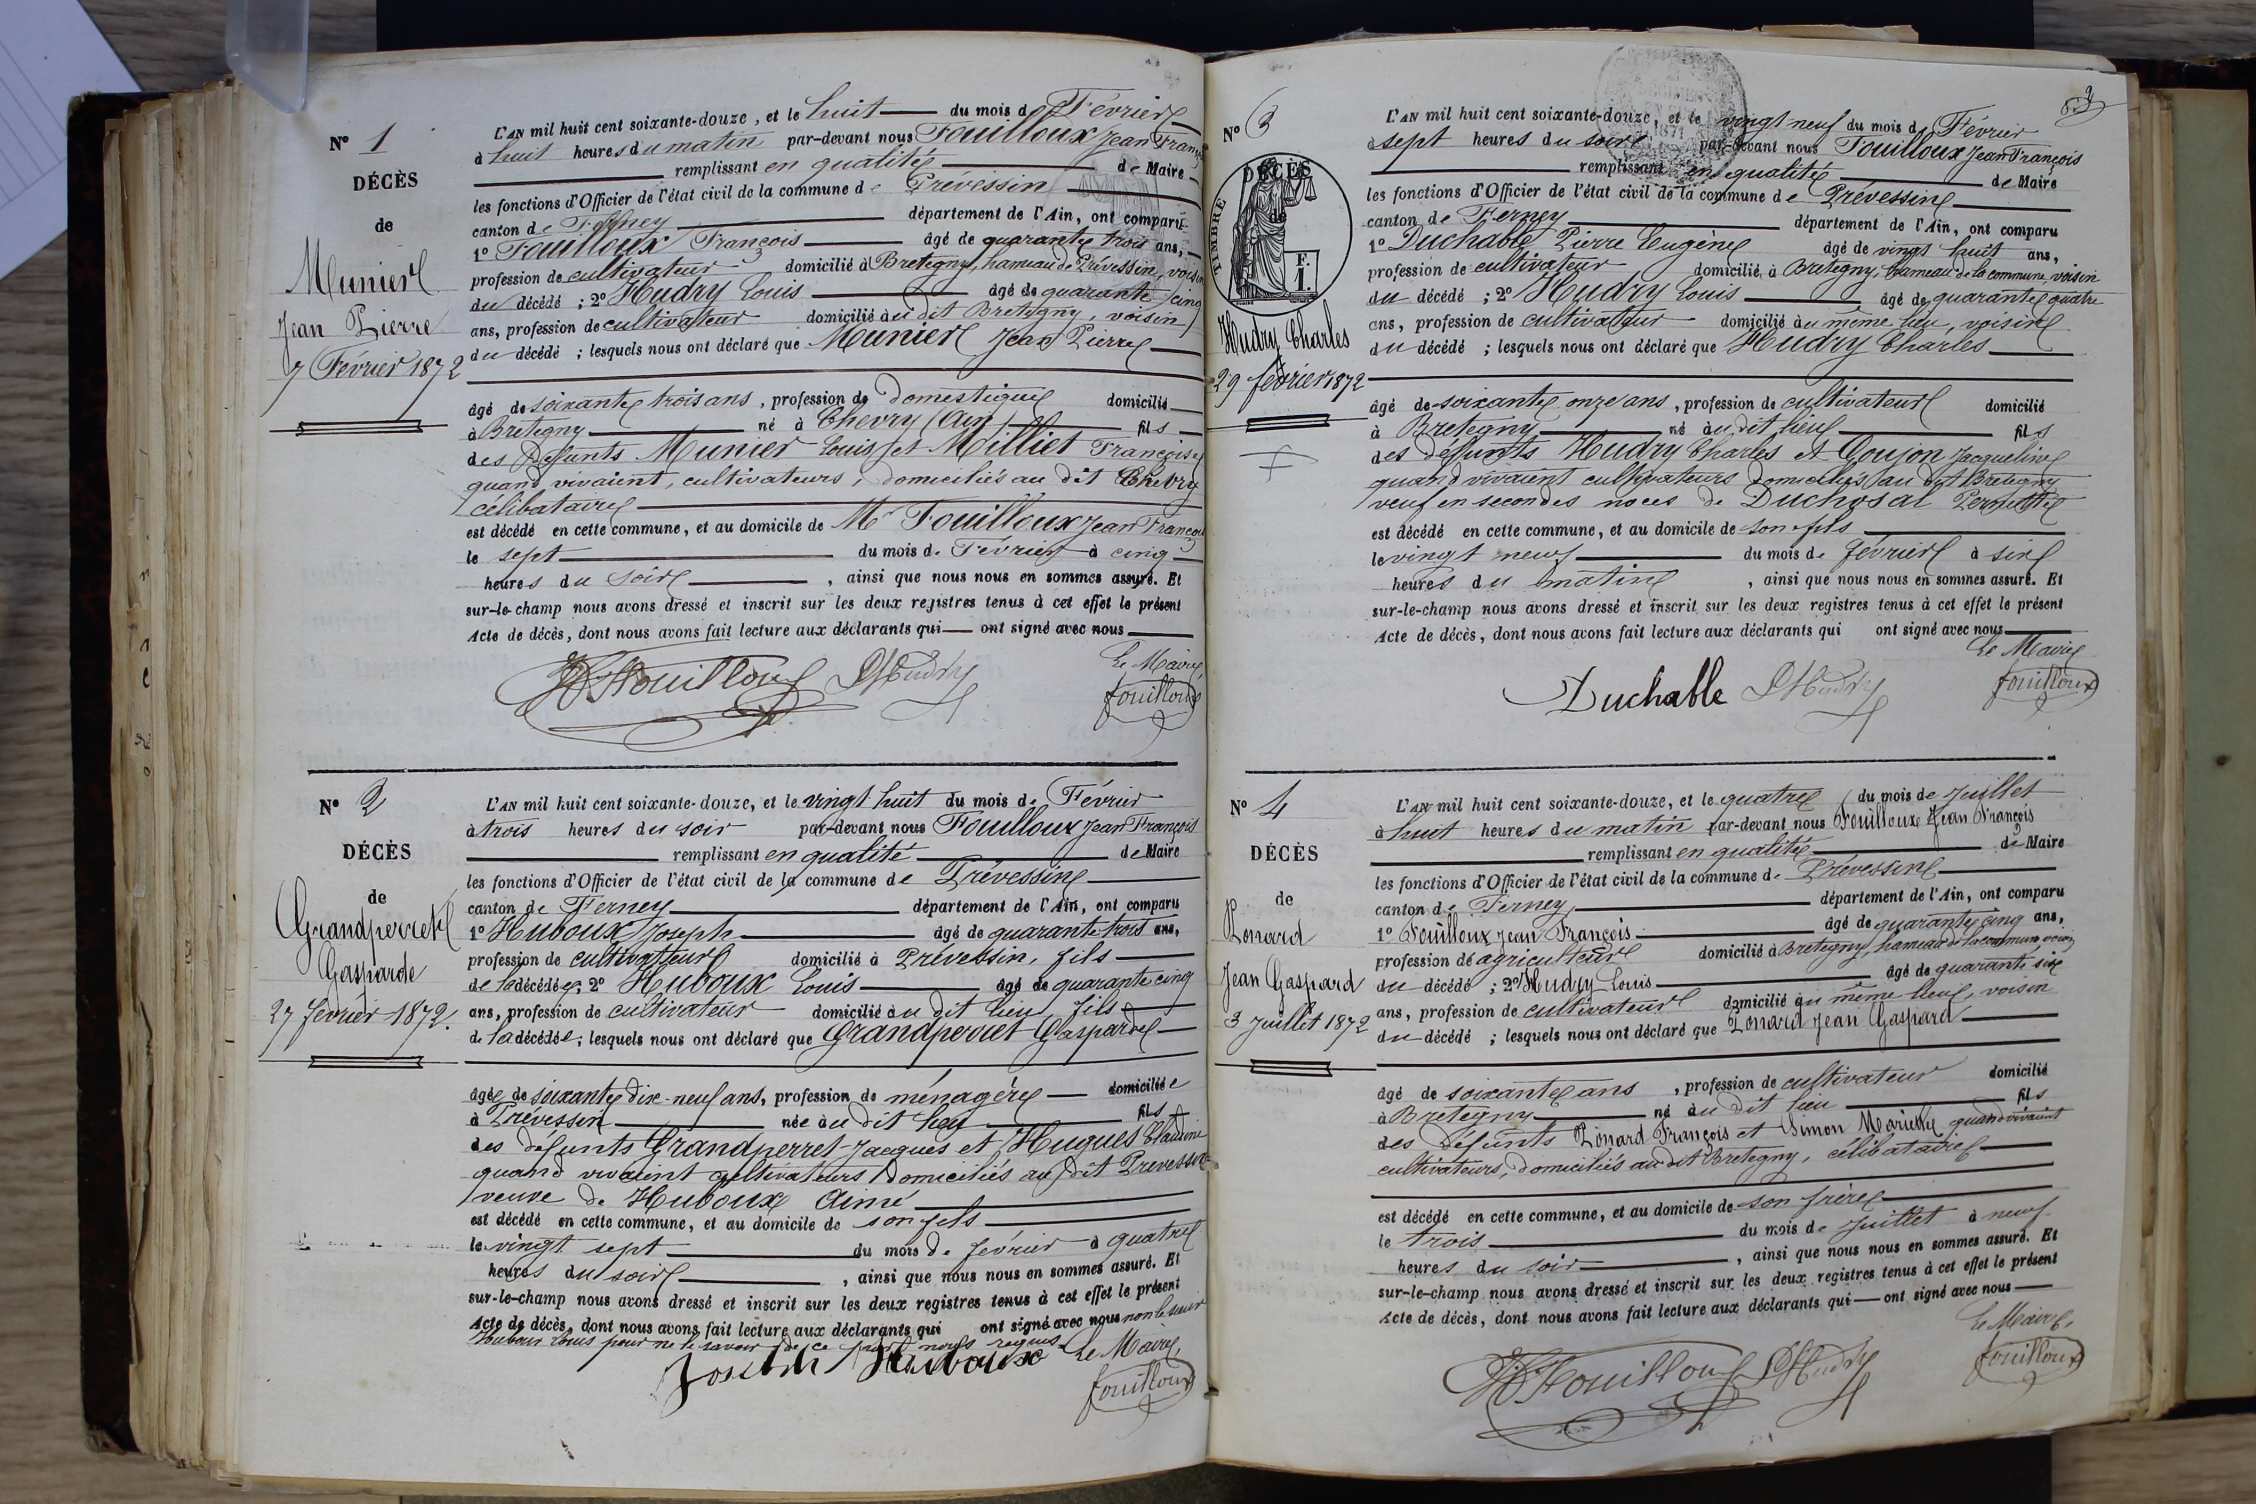 N° 1
DÉCÈS
de
Munier
Jean Pierre
7 Février 1872
L'AN mil huit cent soixante-douze, et le huit du mois de Février
à huit heures du matin par-devant nous Fouilloux Jean François
remplissant en qualité de Maire
les fonctions d'Officier de l'état civil de la commune de Prévessin
canton de Ferney département de l'Ain, ont comparu
1° Fouilloux François âgé de quarante trois ans,
profession de cultivateur domicilié à Bretegny, hameau de Prévessin, voisin
du décédé ; 2° Hudry Louis âgé de quarante cinq
ans, profession de cultivateur domicilié au dit Bretegny, voisin
du décédé ; lesquels nous ont déclaré que Munier Jean Pierre
âgé de soixante trois ans, profession de domestique domicilié
à Bretegny né à Chevry (Ain) fils
des défunts Munier Louis et Milliet Françoise
quand vivaient, cultivateurs, domiciliés au dit Chevry
célibataire
est décédé en cette commune, et au domicile de Mr Fouilloux Jean François
le sept du mois de Février à cinq
heures du soir, ainsi que nous nous en sommes assuré. Et
sur-le-champ nous avons dressé et inscrit sur les deux registres tenus à cet effet le présent
Acte de décès, dont nous avons fait lecture aux déclarants qui ont signé avec nous
Le Maire
Fouilloux Hudry fouilloux
N° 2
DÉCÈS
de
Grandperret
Gasparde
27 février 1872.
L'AN mil huit cent soixante-douze, et le vingt huit du mois de Février
à trois heures du soir par-devant nous Fouilloux Jean François
remplissant en qualité de Maire
les fonctions d'Officier de l'état civil de la commune de Prévessin
canton de Ferney département de l'Ain, ont comparu
1° Huboux Joseph âgé de quarante trois ans,
profession de cultivateur domicilié à Prévessin, fils
de la décédée ; 2° Huboux Louis âgé de quarante cinq
ans, profession de cultivateur domicilié au dit lieu, fils
de la décédée ; lesquels nous ont déclaré que Grandperret Gasparde
âgée de soixante dix-neuf ans, profession de ménagère domiciliée
à Prévessin née au dit lieu fils
des défunts Grandperret Jacques et Hugues Claudine
quand vivaient cultivateurs domiciliés au dit Prévessin
veuve de Huboux Aimé
est décédé en cette commune, et au domicile de son fils
le vingt sept du mois de février à quatre
heures du soir, ainsi que nous nous en sommes assuré. Et
sur-le-champ nous avons dressé et inscrit sur les deux registres tenus à cet effet le présent
Acte de décès, dont nous avons fait lecture aux déclarants qui ont signé avec nous non le sieur
Huboux Louis pour ne le savoir de ce par nous requis
Le Maire,
Joseph Huboux fouilloux
2
N° 3
DÉCÈS
de
TIMBRE
F.
1.
Hudry Charles
29 février 1872
L'AN mil huit cent soixante-douze, et le vingt neuf du mois de Février
à sept heures du soir par-devant nous Fouilloux Jean François
remplissant en qualité de Maire
les fonctions d'Officier de l'état civil de la commune de Prévessin
canton de Ferney département de l'Ain, ont comparu
1° Duchable Pierre Eugène âgé de vingt huit ans,
profession de cultivateur domicilié à Bretegny, hameau de la commune voisin
du décédé ; 2° Hudry Louis âgé de quarante quatre
ans, profession de cultivateur domicilié au même lieu, voisin
du décédé ; lesquels nous ont déclaré que Hudry Charles
âgé de soixante onze ans, profession de cultivateur domicilié
à Bretegny né au dit lieu fils
des défunts Hudry Charles et Goujon Jacqueline
quand vivaient cultivateurs domiciliés au dit Bretegny
veuf en secondes noces de Duchosal Pernette
est décédé en cette commune, et au domicile de son fils
le vingt neuf du mois de février à six
heures du matin, ainsi que nous nous en sommes assuré. Et
sur-le-champ nous avons dressé et inscrit sur les deux registres tenus à cet effet le présent
Acte de décès, dont nous avons fait lecture aux déclarants qui ont signé avec nous
Le Maire
Duchable Hudry fouilloux
N° 4
DÉCÈS
de
Ponard
Jean Gaspard
3 Juillet 1872
L'AN mil huit cent soixante-douze, et le quatre du mois de Juillet
à huit heures du matin par-devant nous Fouilloux Jean François
remplissant en qualité de Maire
les fonctions d'Officier de l'état civil de la commune de Prévessin
canton de Ferney département de l'Ain, ont comparu
1° Fouilloux Jean François âgé de quarante cinq ans,
profession de agriculteur domicilié à Bretegny, hameau de la commune, voisin
du décédé ; 2° Hudry Louis âgé de quarante six
ans, profession de cultivateur domicilié au même lieu, voisin
du décédé ; lesquels nous ont déclaré que Ponard Jean Gaspard
âgé de soixante ans, profession de cultivateur domicilié
à Bretegny né au dit lieu fils
des défunts Ponard François et Simon Mariette quand vivaient
cultivateurs, domiciliés au dit Bretegny, célibataire
est décédé en cette commune, et au domicile de son frère
le trois du mois de Juillet à neuf
heures du soir, ainsi que nous nous en sommes assuré. Et
sur-le-champ nous avons dressé et inscrit sur les deux registres tenus à cet effet le présent
Acte de décès, dont nous avons fait lecture aux déclarants qui ont signé avec nous
Le Maire,
Fouilloux Hudry fouilloux